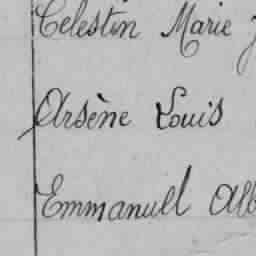 Celestin Marie
Arsène Louis
Emmanuel Alb